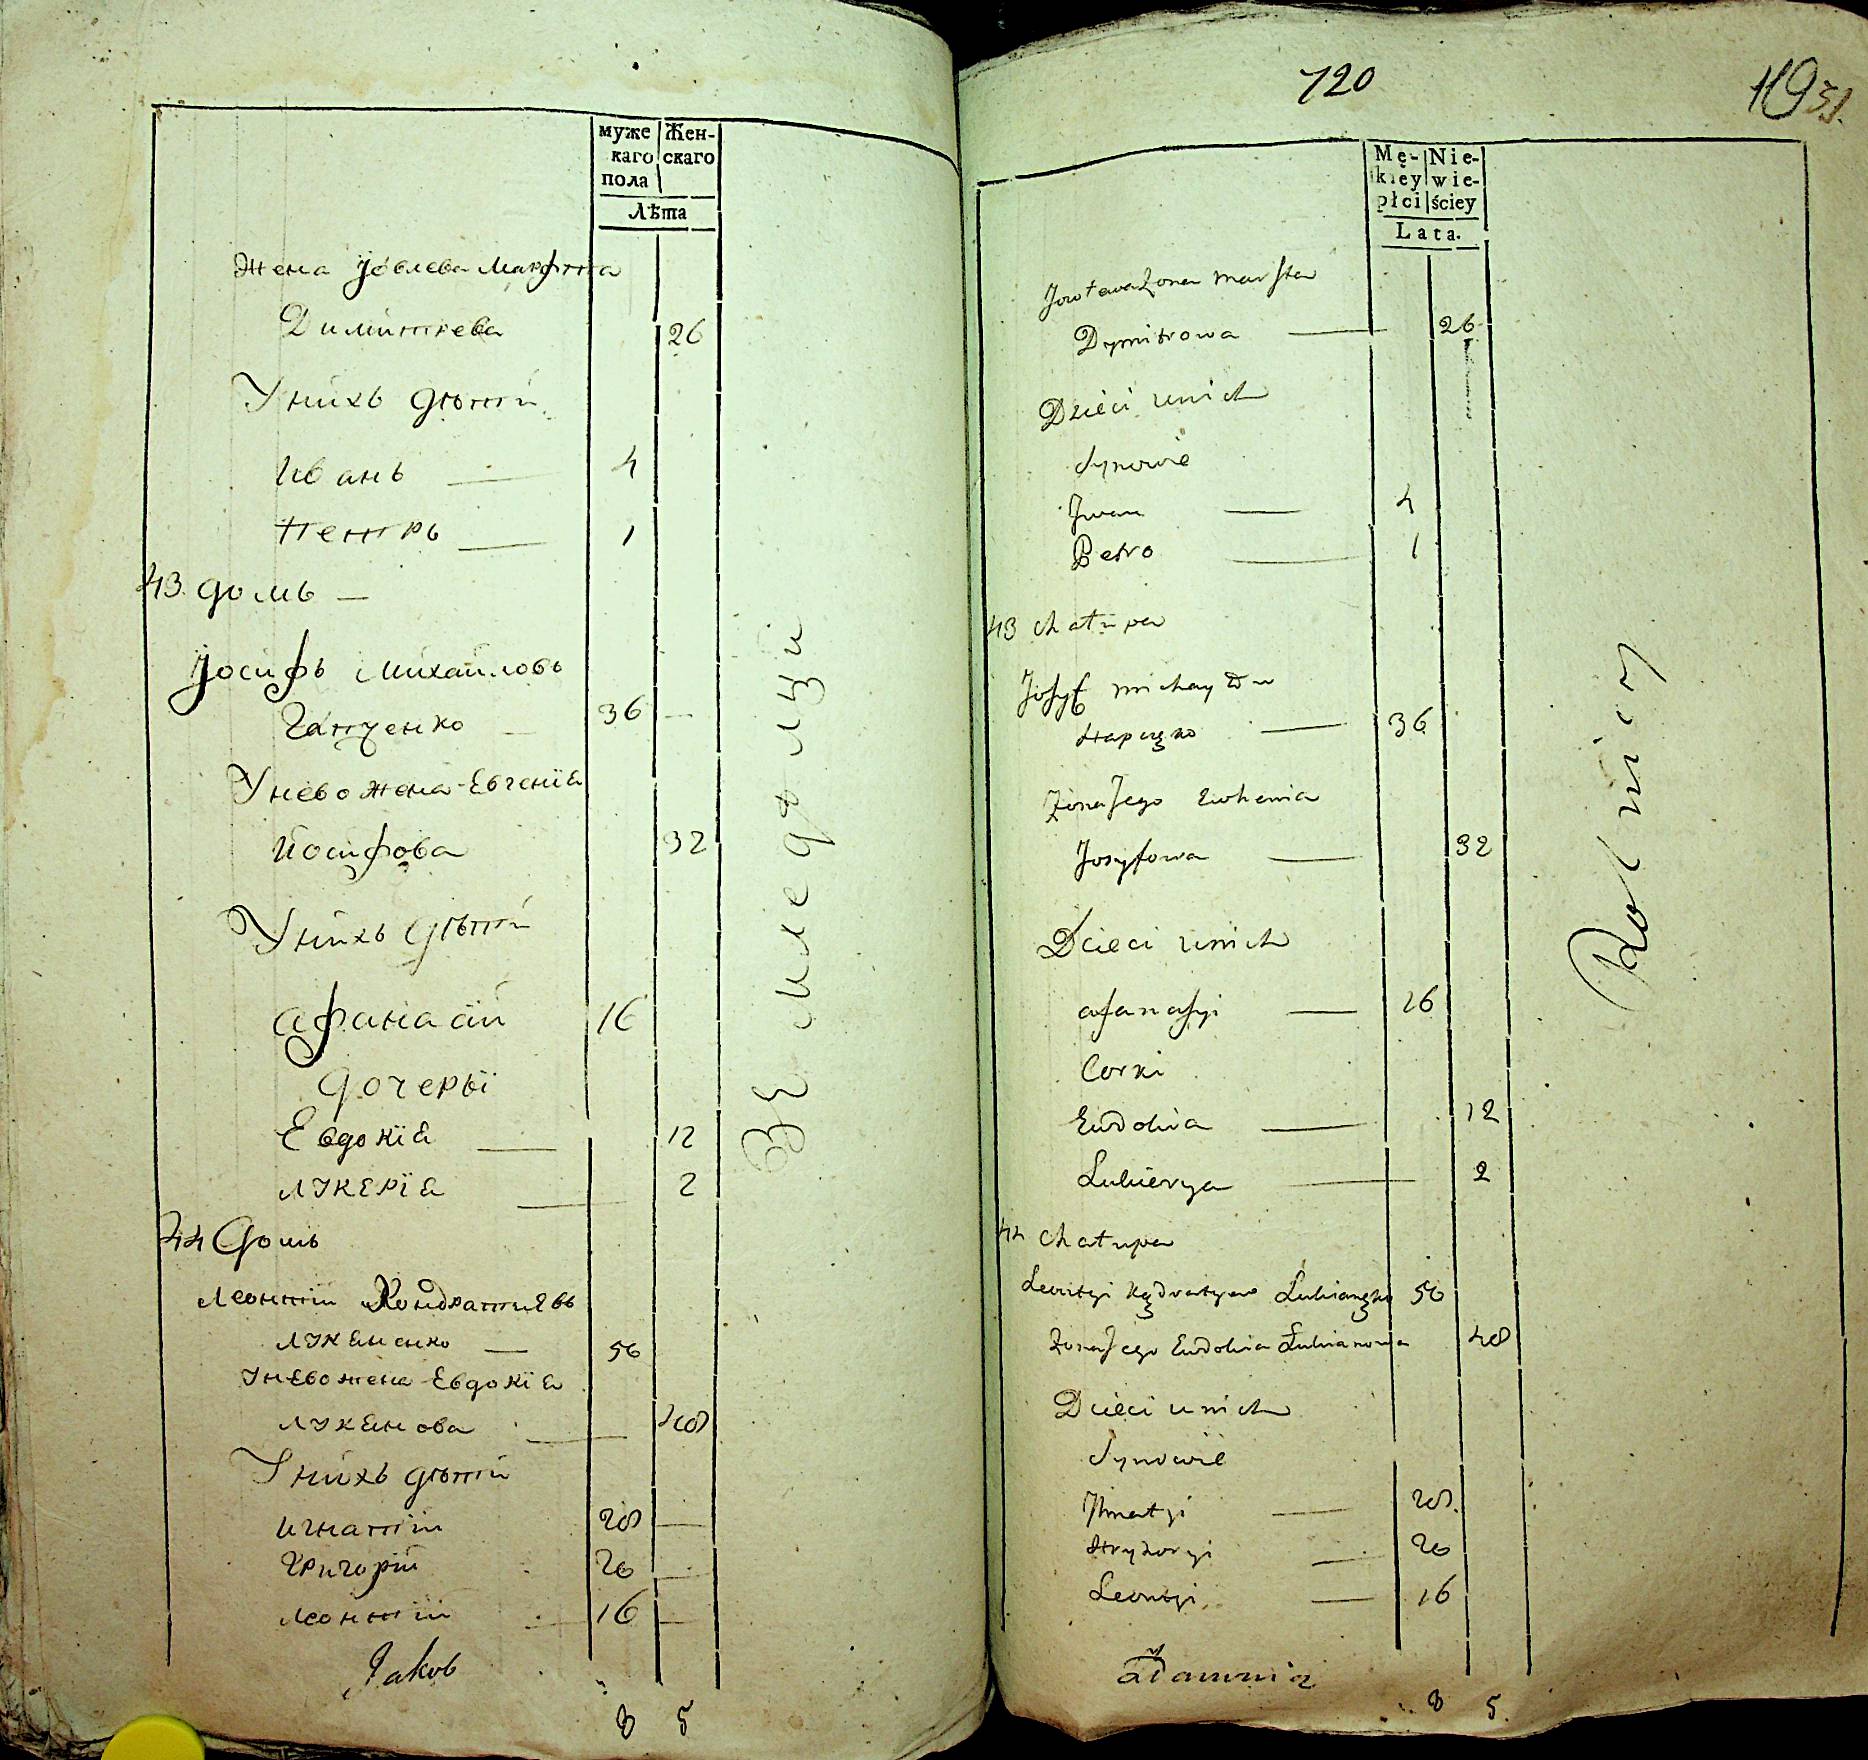 муже
каго
пола
Жен-
скаго
Лѣта
Жена Іовлева Марфта
Димитрева 26
Унихъ дѣтй
Иванъ — 4
Петръ — 1
43 домъ —
Іосифъ Михайловъ
36 —
Унево жена Евгенїа
Йосифова 32
Унихъ дѣтй
Афанасій 16
дочеры
Евдокїа — 12
Лукерїа — 2
44 домъ
Леонтій Кондратиевъ
Лукѣненко — 56
Унево жена Евдокїа
Лукѣнова — 48
Унихъ дѣтй
Игнатій 28 —
Григорій 26 —
Леонтій 16 —
Jakob
8 5
Земледѣлци
120
119
Mę-
kiey
płci
Nie-
wie-
ściey
Lata.
Żona Marfta
Dymitrowa — 26
Dzieci unich
Synowie
Jwan — 4
Petro — 1
43 chałupa
Josyf Michayłow
36
Żona Jego Euhenia
Josyfowa — 32
Dzieci unich
Afanasyi — 16
Corki
Eudokia — 12
Lukierya — 2
44 chałupa
Leontyi Kądratyew Łukianęko 56
Żona Jego Eudokia Łukianowa 48
Dzieci unich
Synowie
Jhnatyi — 28
Hryhoryi — 26
Leontyi — 16
8 5
Rolnicy